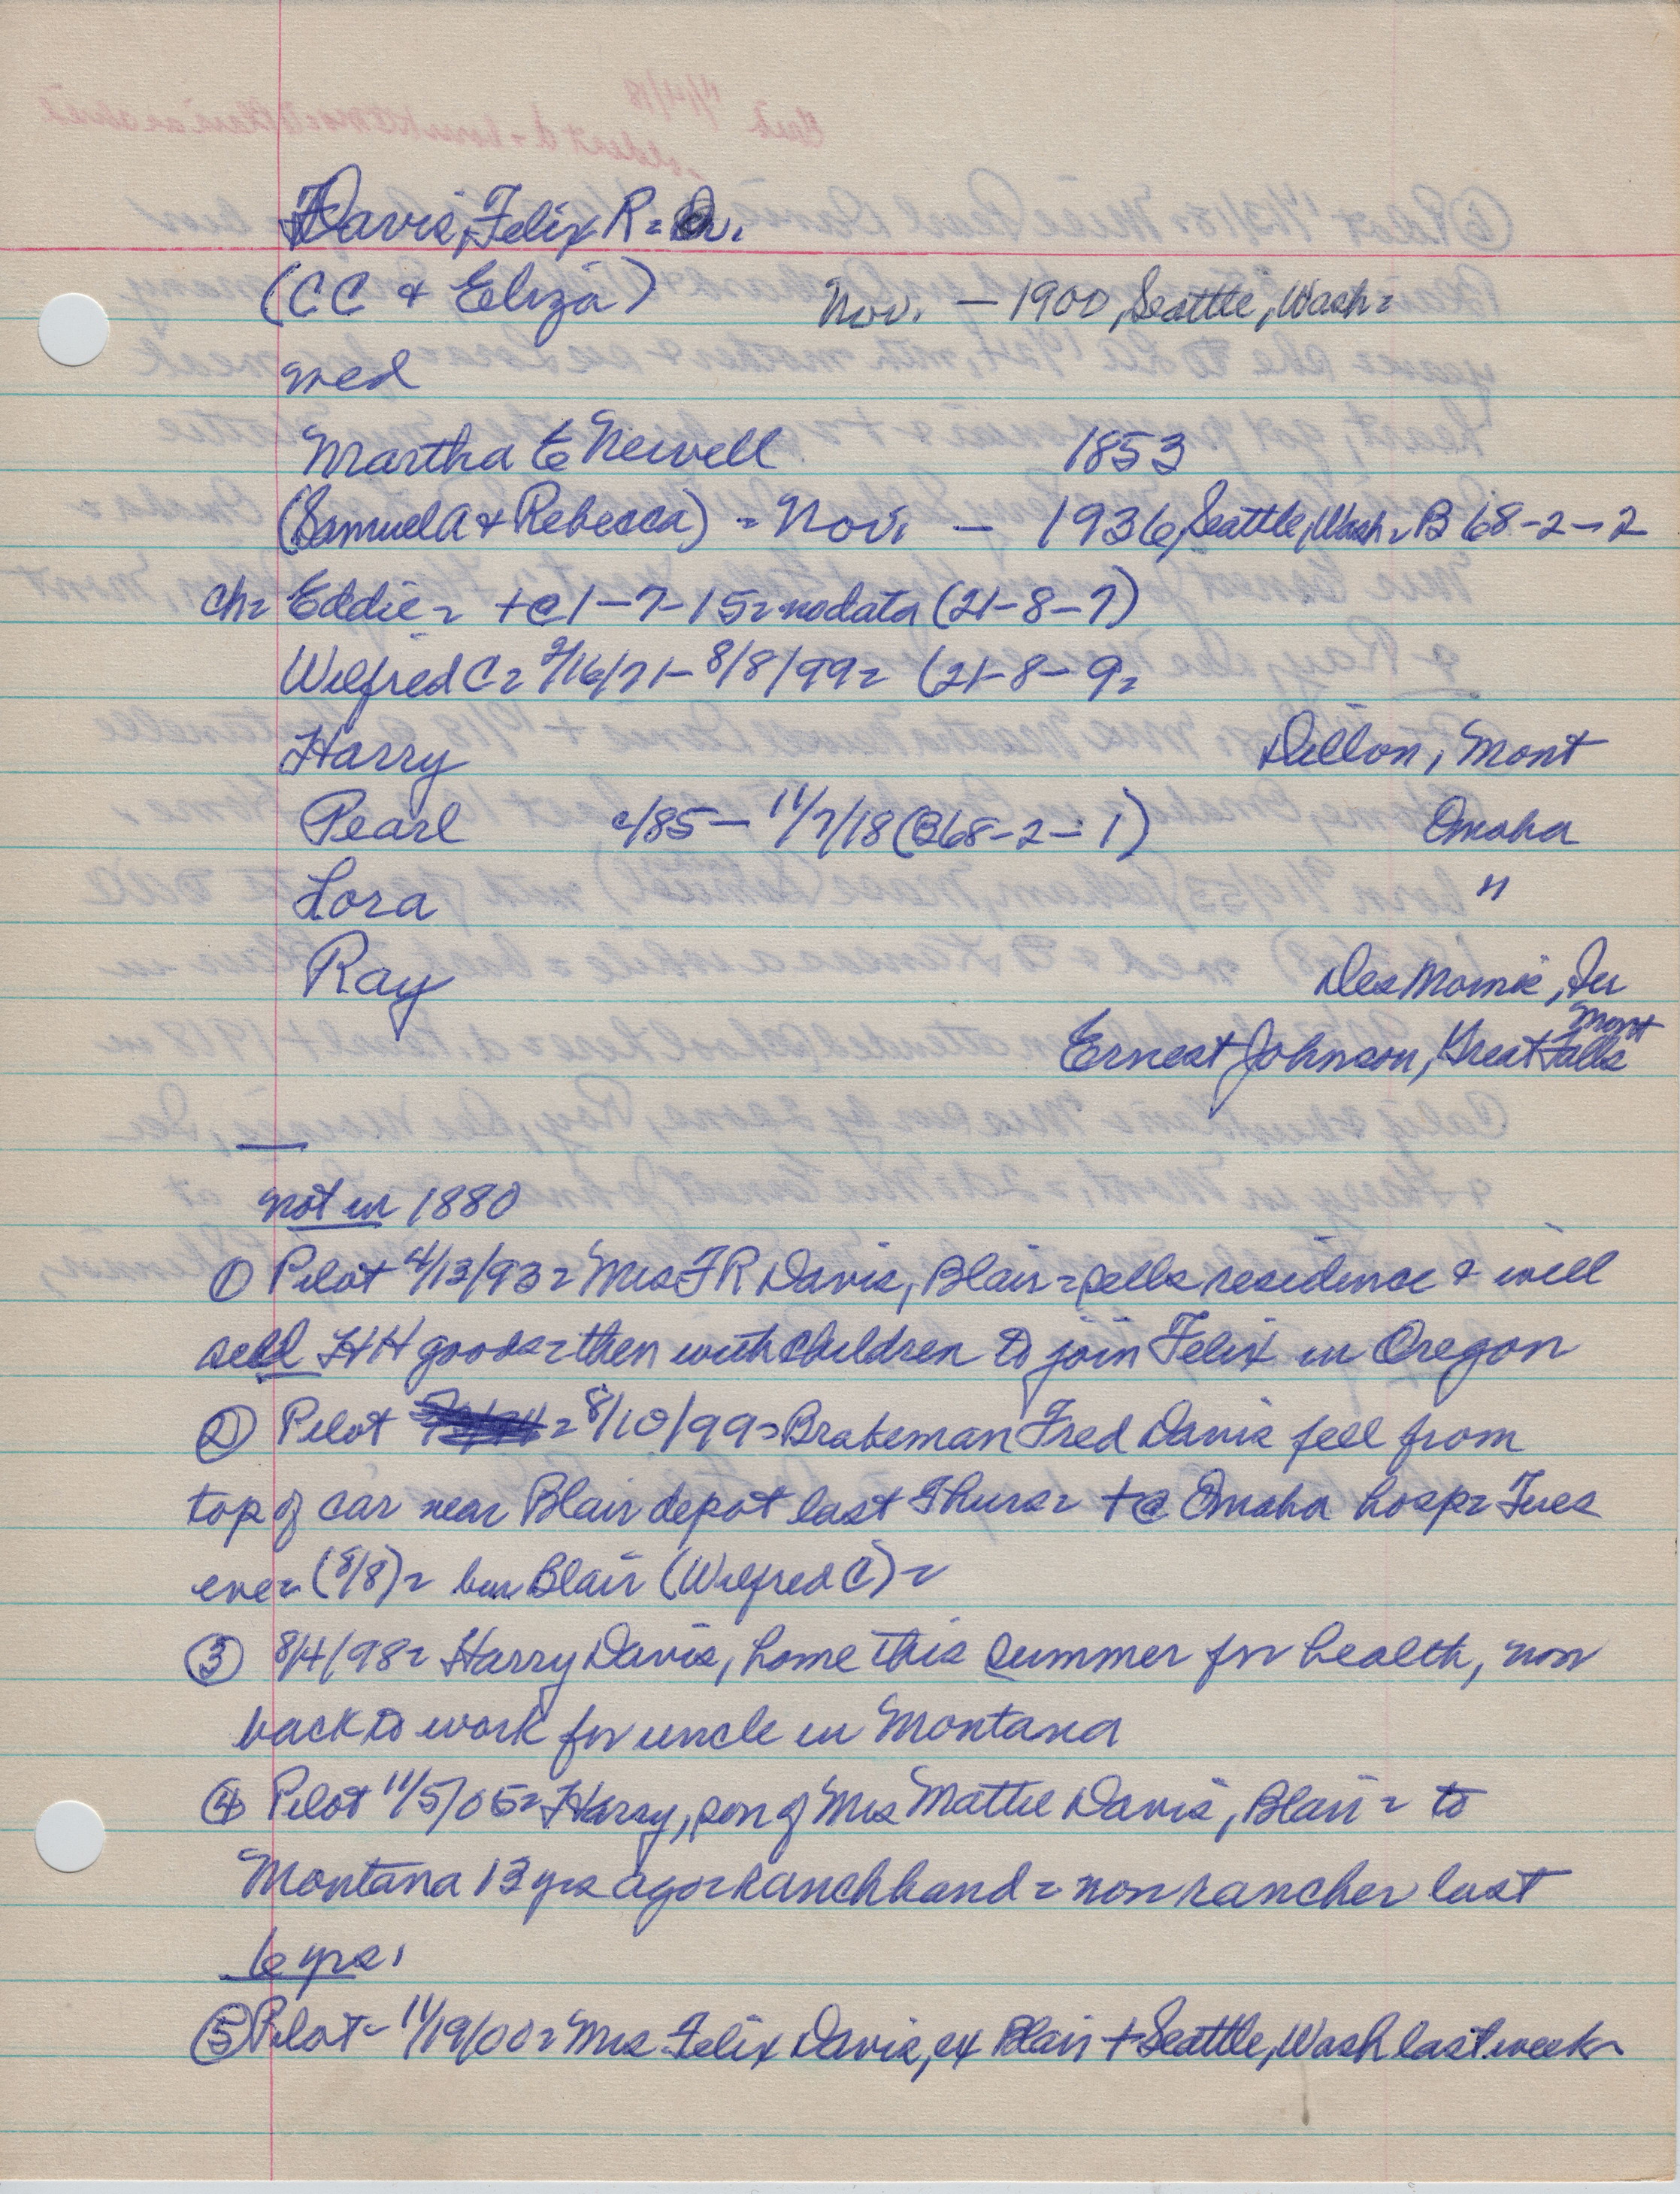 Davis, Felix R =
(CC & Eliza)
Nov. — 1900, Seattle, Wash =
med
Martha E Newell 1853
(Samuel A & Rebecca) = Nov. — 1936, Seattle, Wash = B 68-2-2
ch= Eddie = +@ 1-7-15 = no data (21-8-7)
Wilfred C = 2/16/71 - 8/8/99 = (21-8-9=
Harry Dillon, Mont
Pearl c/85 — 11/7/18 (B68-2-1) Omaha
Lora "
Ray Des Moines, Ia
Mont
Ernest Johnson, Great Falls
not in 1880
① Pilot 4/13/93 = Mrs F R Davis, Blair = sells residence & will
sell HH goods = then with children to join Felix in Oregon
② Pilot = 8/10/99 = Brakeman Fred Davis fell from
top of car near Blair depot last Thurs = +@ Omaha hosp = Tues
eve = (8/8) = bur Blair (Wilfred C) =
③ 8/4/98 = Harry Davis, home this summer for health, now
back to work for uncle in Montana
④ Pilot 11/5/05 = Harry, son of Mrs Mattie Davis, Blair = to
Montana 13 yrs ago = ranchhand = now rancher last
6 yrs.
⑤ Pilot - 11/19/00 = Mrs Felix Davis, ex Blair + Seattle, Wash last week =